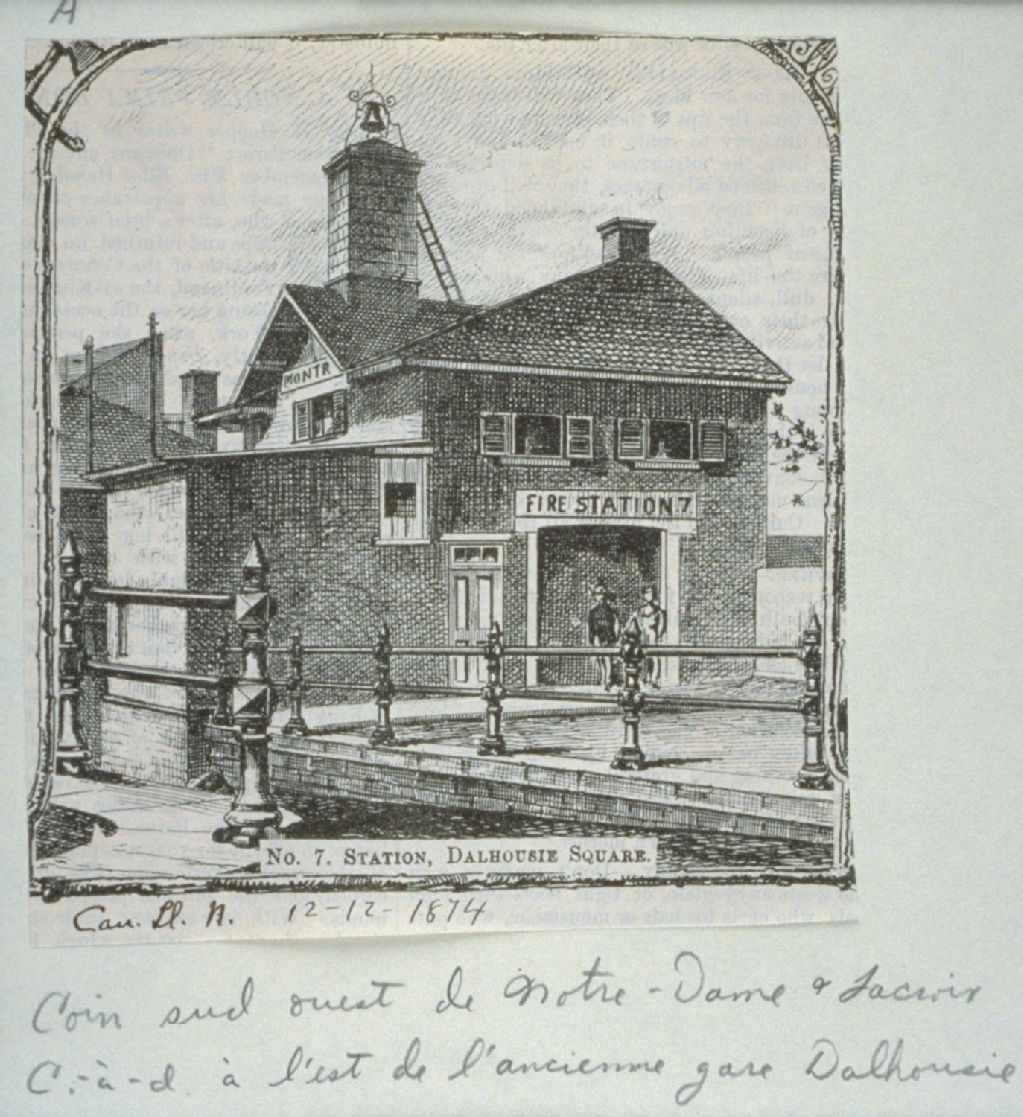 A
MONTR
FIRE STATION 7
No. 7. Station, Dalhousie Square.
Can. Il. N. 12-12-1874
Coin sud ouest de Notre-Dame & Lacroix
C.-à-d. à l'est de l'ancienne gare Dalhousie